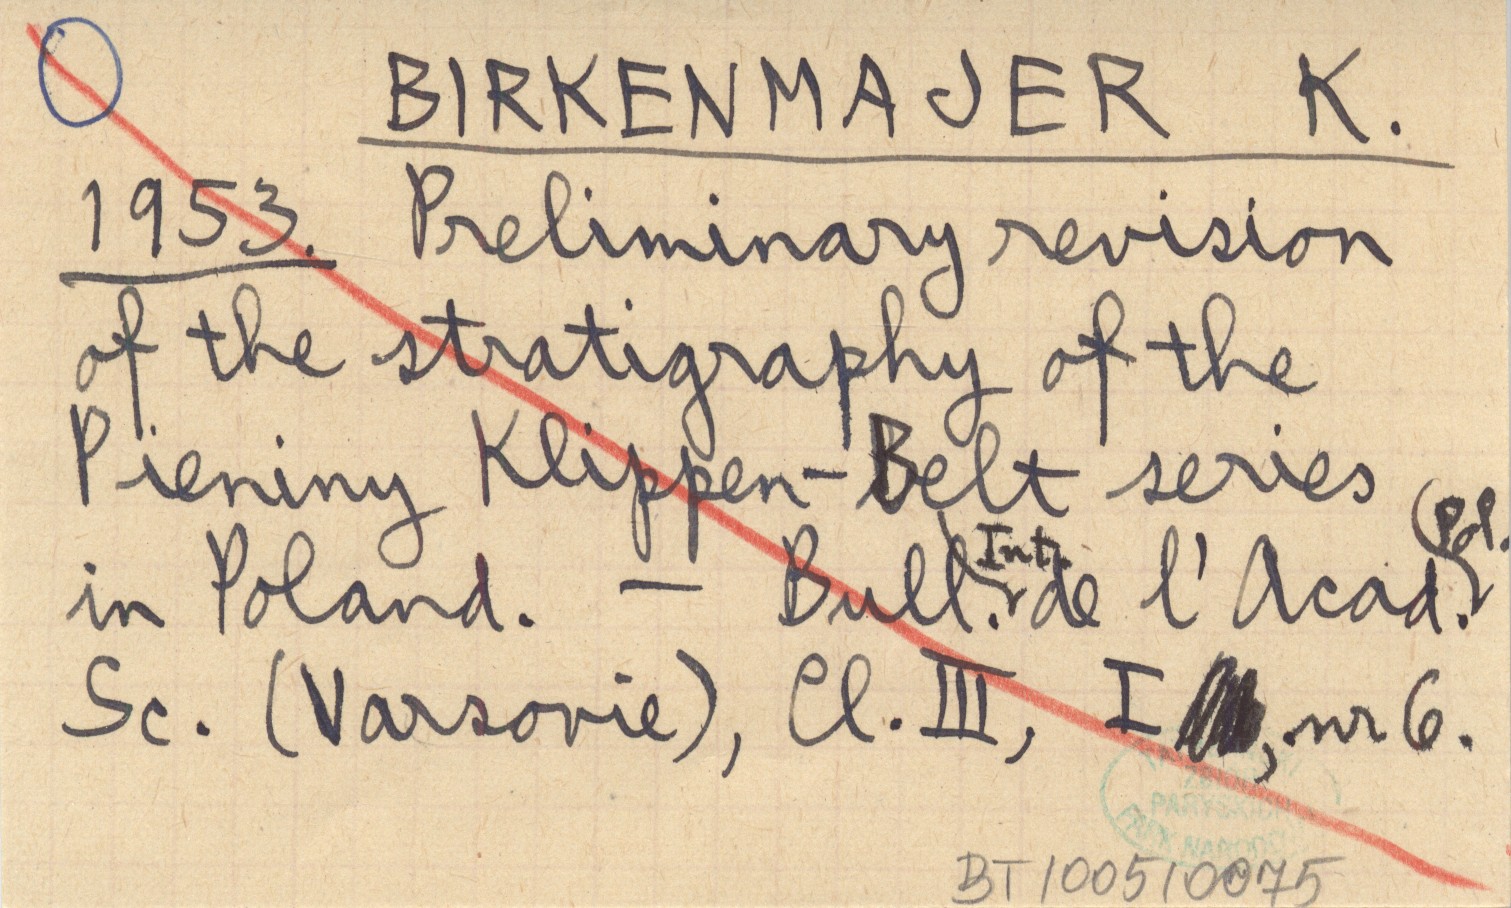 BIRKENMAJER K.
1953. Preliminary revision
of the stratigraphy of the
Pieniny Klippen-Belt series
in Poland. — Bull. Int. de l'Acad. (Pol.
Sc. (Varsovie), Cl. III, I, nr 6.
PARYSKICH
PARK NARODOWY
BT100510075